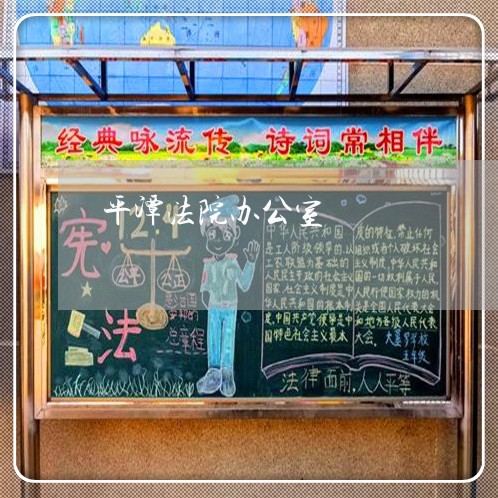 经典咏流传 诗词常相伴
平潭法院办公室
12.4
宪法
公平
公正
总章程
中华人民共和国
是工人阶级领导的,以
工农联盟为基础的
人民民主专政的社会主义
国家,社会主义制度是中
华人民共和国的根本制
度,中国共产党领导是中
国特色社会主义最本
质的特征,禁止任何
组织或者个人破坏社会
主义制度,中华人民共和
国的一切权利属于人民,
人民行使国家权力的机
关是全国人民代表大会
和地方各级人民代表
大会。
五年级
法律面前,人人平等